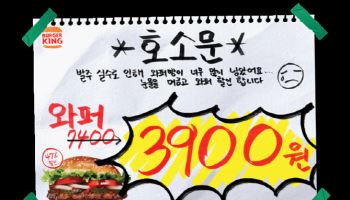 BURGER KING
*호소문*
발주 실수로 인해 와퍼팩이 너무 많이 남았어요...
눈물을 머금고 와퍼 할인 합니다
와퍼
7400→
3900원
47%